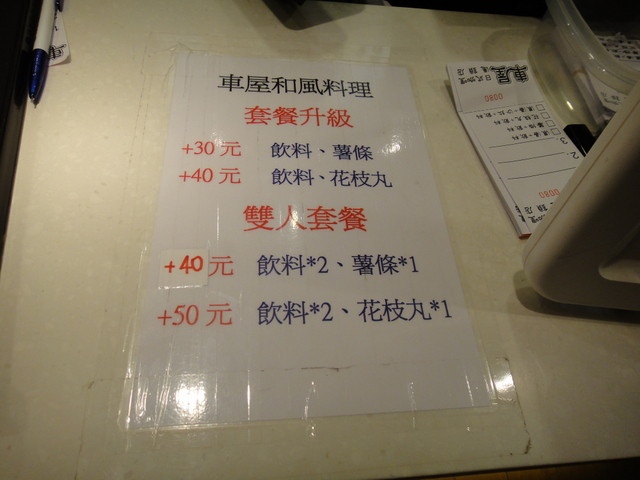 車屋和風料理
套餐升級
+30 元 飲料、薯條
+40 元 飲料、花枝丸
雙人套餐
+40 元 飲料*2、薯條*1
+50 元 飲料*2、花枝丸*1
車屋
0080
2.
3.
0080